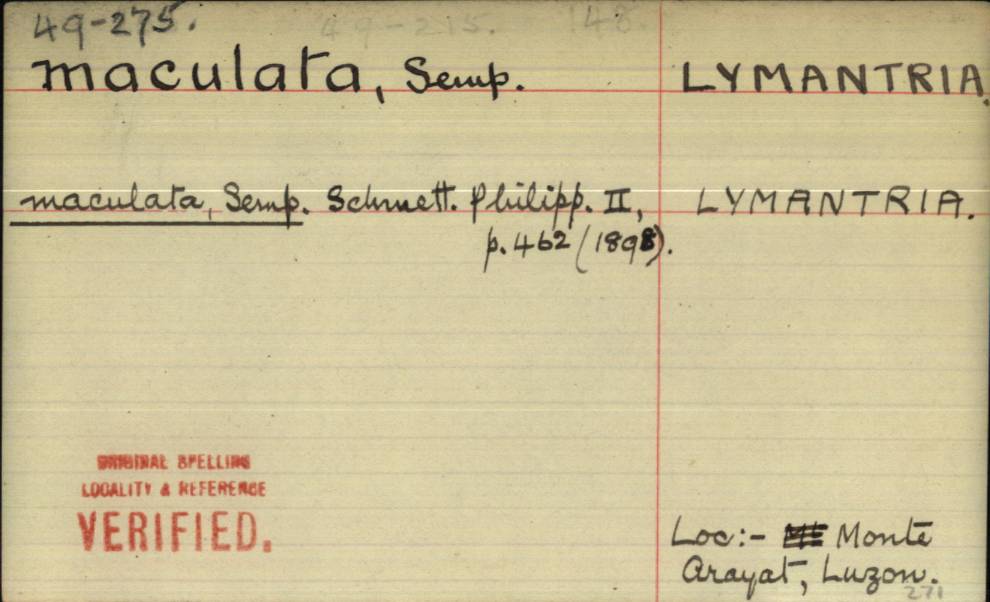 49-275. 49-215. 148.
maculata, Semp. LYMANTRIA.
maculata, Semp. Schmett. Philipp. II, LYMANTRIA.
p. 462 (1898).
ORIGINAL SPELLING
LOCALITY & REFERENCE
VERIFIED.
Loc:- Monte
Arayat, Luzon.
271